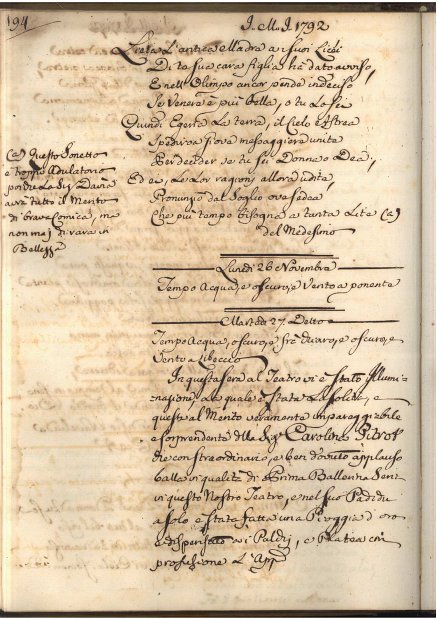 194
I. M. I. 1792
L'antica Madre a i suoi Lidi
Di te sua cara figlia hà dato avviso,
E nell'Olimpo ancor pende indeciso
Se Venere è più bella, o tu
Quindi Egerta la terra, il Cielo
Spedirva Giova messaggiera unita
Per decider se tu sei Donna o Dea;
Ed ei, le lor ragioni allora udite,
Pronunziò dal Soglio ove sedea
Che più tempo bisogna a tanta Lite (a)
del Medesimo
(a) Questo Sonetto
è troppo Adulatorio
perche La Sig.
avrà tutto il Merito
di brava Comica, ma
non mai di rara in
Bellezza
Lunedì 26 Novembre
Tempo Acqua, e oscuro, e Vento a ponente
Martedi 27. Detto
Tempo Acqua, oscuro, e oscuro, e
Vento a Libeccio
In questa sera al Teatro vi è stato Illumi-
nazione, a le quale è stata La solita, e
questa al Merito veramente impareggiabile
e sorprendente della Sig.ra Carolina Pitrot
che con straordinario, e ben dovuto applauso
balla in qualità di Prima Ballerina Seria
in questo Nostro Teatro, e nel suo Padedù
a solo è stata fatta una Pioggia d'oro
e dispensato ai Palchi, e Platea con
profusione L'App